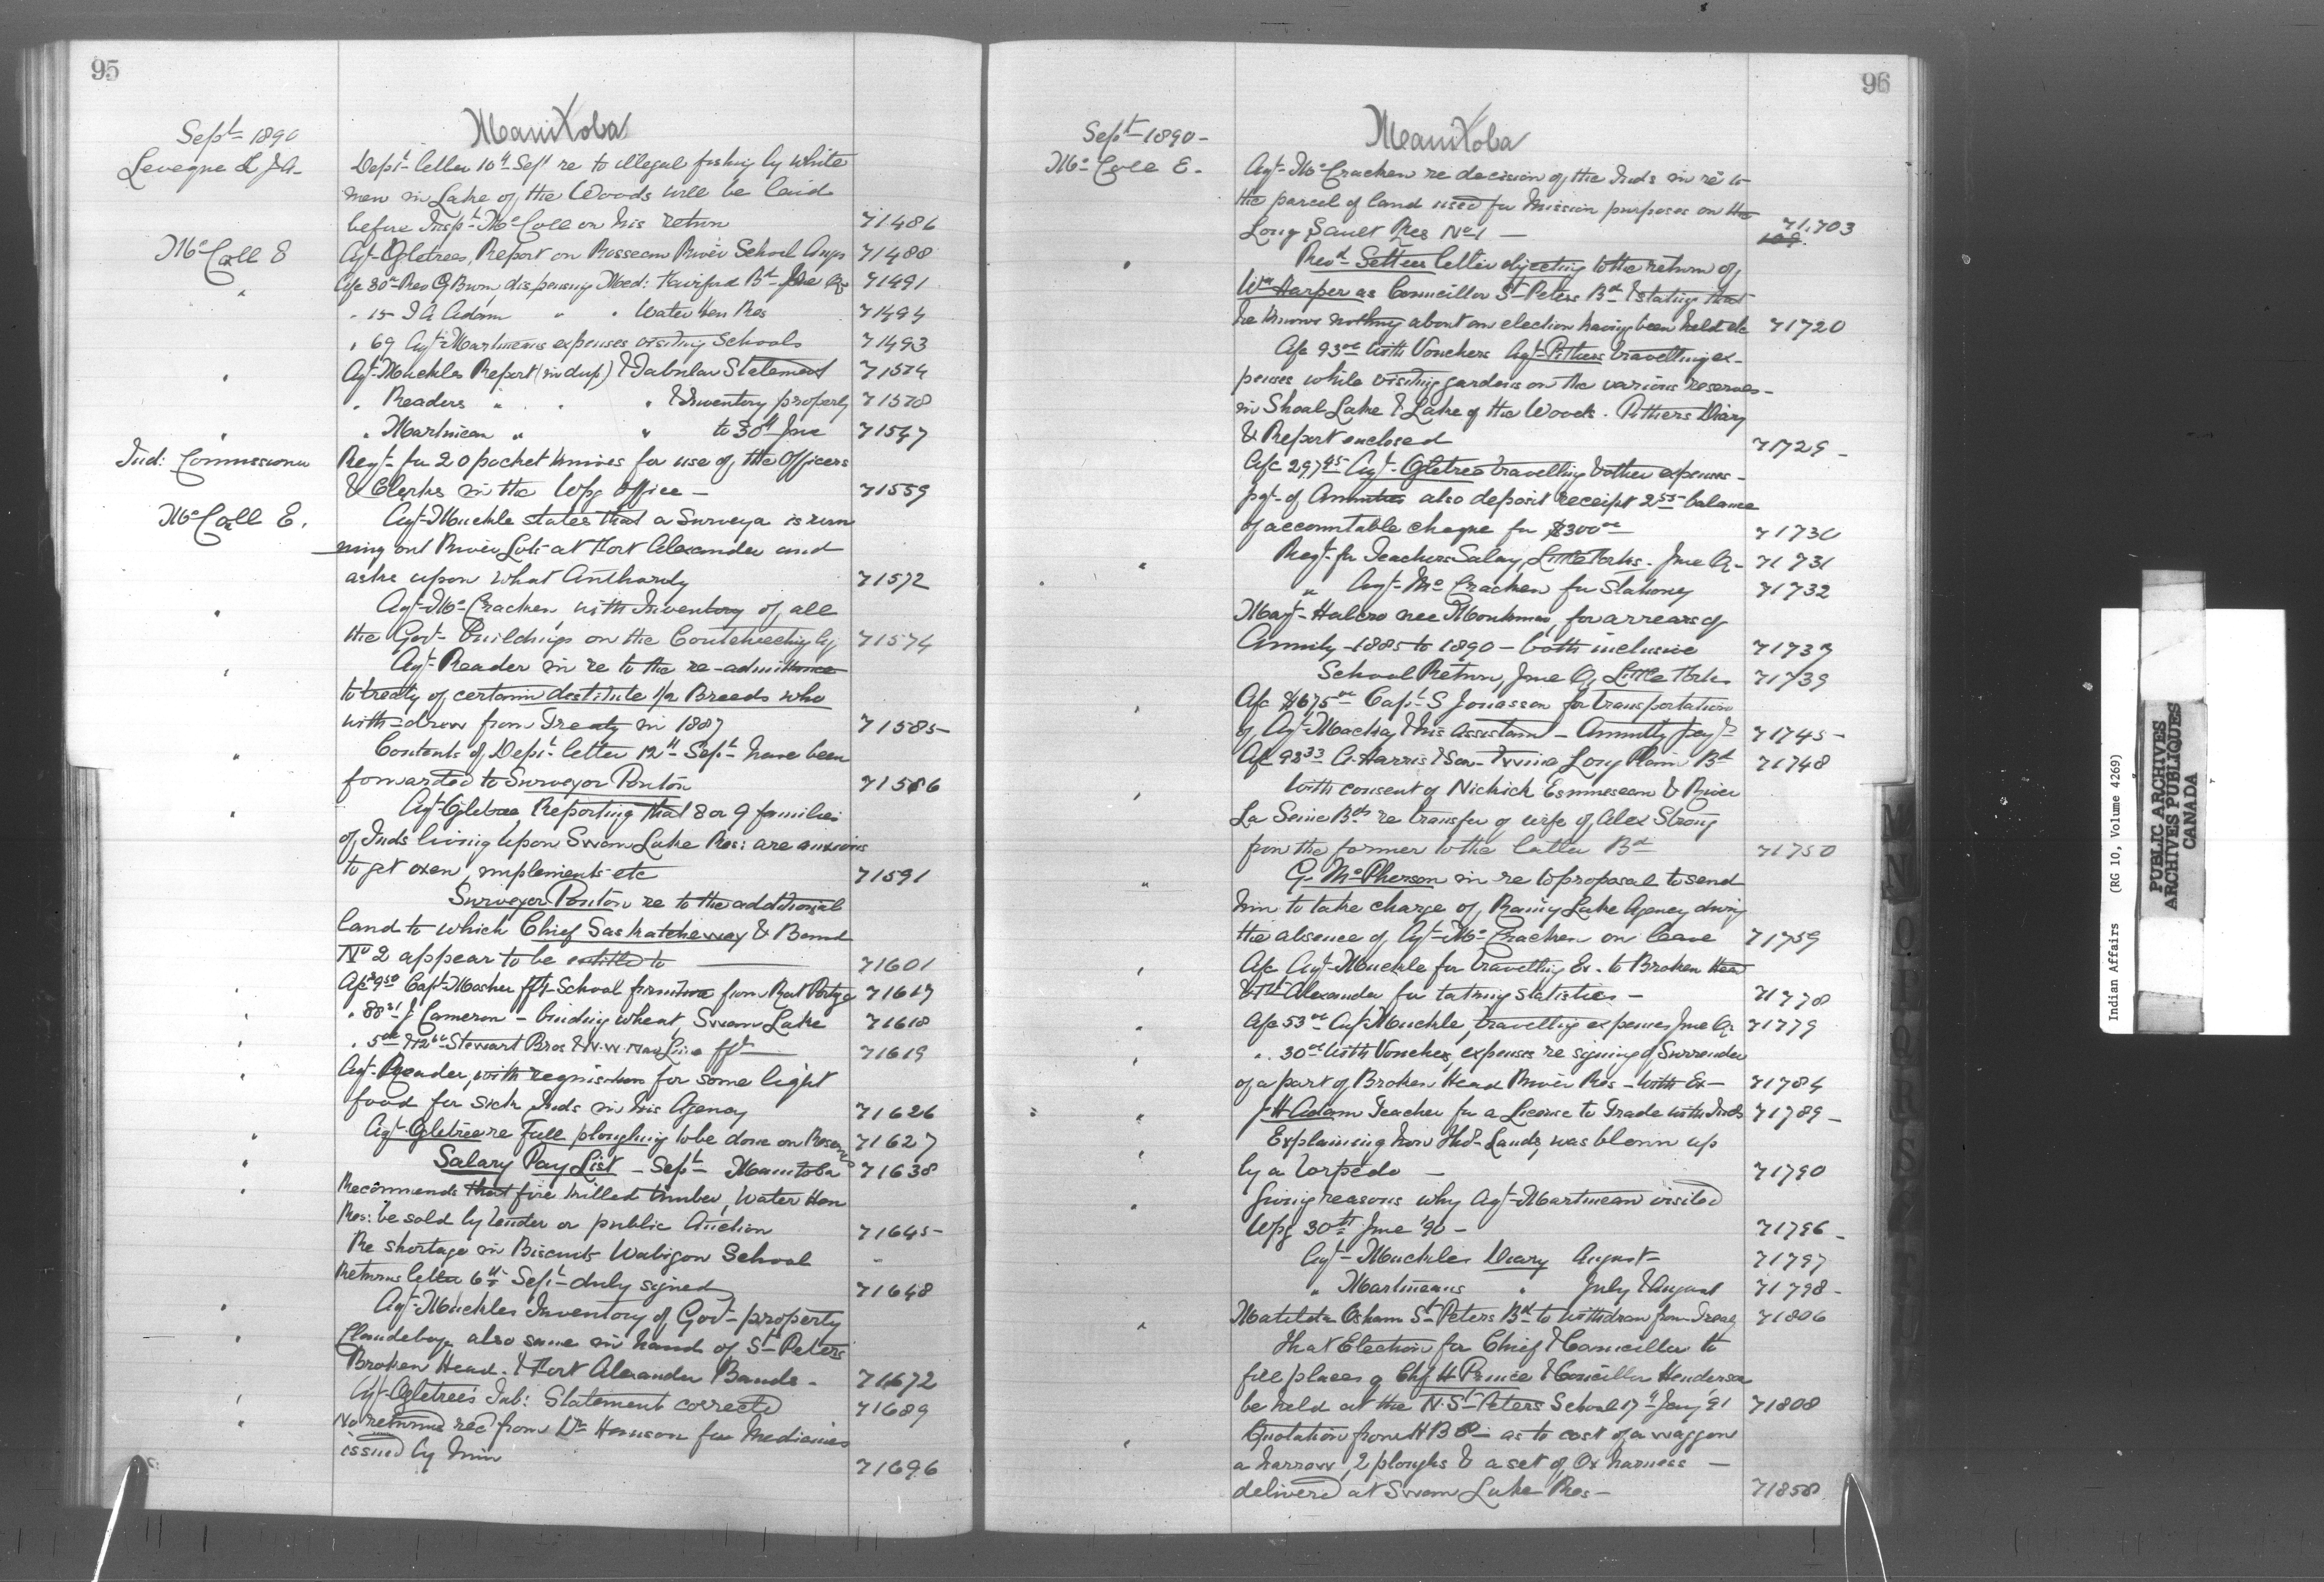 95
Manitoba
Sept 1890
Levegne L J A - Dept letter 10th Sept re to illegal fishing by white
men in Lake of the Woods will be laid
before Insp. McColl on his return 71486
McColl E Agt Ogletrees, Report on Rosseau River School Augs 71488
" A/c 80 Rev G Burn, dispensing Med: Fairford Bd June Qr 71491
" 15 I A Adam " " Water Hen Res 71494
" 69 Agt Martineaus expenses visiting Schools 71493
" Agt Muckles Report (in dup) & Tabular Statement 71574
" Readers " " " & Inventory property 71578
" " Martineau " " to 30th June 71547
Ind: Commissioner Reqt for 20 pocket knives for use of the Officers
& Clerks in the Wpg Office - 71559
McColl E. Agt Muckle states that a Surveyor is run
ning out River Lots at Fort Alexander and
asks upon what Authority 71572
" Agt McCracken, with Inventory of all
the Govt Buildings on the Coutcheeching Agy 71574
" Agt Reader in re to the re-admittance
to treaty of certain destitute 1/2 Breeds who
with-drew from Treaty in 1887 71585-
" Contents of Dept letter 12th Sept have been
forwarded to Surveyor Ponton 71586
" Agt Ogletree, Reporting that 8 or 9 families
of Inds living upon Swan Lake Res: are anxious
to get oxen, implements etc 71591
Surveyor Ponton re to the additional
land to which Chief Saskatcheway & Band
No 2 appear to be entitled to 71601
" A/c 9.50 Capt Mosher fft School furniture from Rat Portage 71617
" " 88.31 J Cameron - binding wheat, Swan Lake 71618
" " Stewart Bros & N.W. Nav Line fft 71619
" Agt Reader, with requisition for some light
food for sick Inds in his Agency 71626
" Agt Ogletree re Fall ploughing to be done on Roseau 71627
" Salary Pay List - Sept - Manitoba 71638
" Recommends that fire killed timber, Water Hen
Res: be sold by tender or public Auction 71645-
Re shortage in Biscuits Wabigon School -
Returns letter 6th Sept duly signed 71648
" Agt Muckles Inventory of Govt property
" Claudeboye also same in hand of St Peters
Broken Head & Fort Alexander Bands - 71672
" Agt Ogletree's Tab: Statement corrected 71689
" No returns recd from Dr Hanson for Medicines
issued by him 71696
96
Manitoba
Sept 1890 -
McColl E. Agt McCracken re decision of the Inds in re to
the parcel of land used for Mission purposes on the
Long Sault Res No 1 - 71,703
109
" Revd Settees letter objecting to the return of
Wm Harper as Councillor St Peters Bd & stating that
he knows nothing about an election having been held etc 71720
A/c 93.00 with Vouchers Agt Pithers travelling ex-
penses while visiting gardens on the various reserves -
in Shoal Lake & Lake of the Woods. Pithers Diary
& Report enclosed 71729 -
A/c 297.45 Agt Ogletree travelling & other expenses -
pgt of Annuities also deposit receipt 2.55 balance
of accountable cheque for $300.00 71730
" Reqt for Teachers Salary, Little Forks - June Qr - 71731
" " Agt McCracken for Stationery 71732
Margt Halcro nee Monkman, for arrears of
Annuity - 1885 to 1890 - both inclusive 71737
School Return, June Qr Little Forks 71739
" A/c $675.00 Capt S Jonasson for transportation
of Agt Mackay & his Assistant - Annuity payts 71745 -
A/c 98.33 A. Harris & Son - Twine Long Plain Bd 71748
" With consent of Nickick Esmineseean & River
La Seine Bds re transfer of wife of Alex Strong
from the former to the latter Bd 71750
" G. McPherson in re to proposal to send
him to take charge of Rainy Lake Agency during
the absence of Agt McCracken on leave 71759
" A/c Agt Muckle for travelling Ex - to Broken Head
& Ft Alexander for taking statistics - 71778
" A/c 53.00 Agt Muckle, travelling expenses June Qr 71779
" " 30.00 With Voucher, expenses re signing of Surrender
of a part of Broken Head River Res - with Ex - 71784
" J H Adam Teacher for a License to Trade with Inds 71789 -
" Explaining how Thos Lauds, was blown up
by a torpedo - 71790
" Giving reasons why Agt Martineau visited
Wpg 30th June '90 - 71796 -
Agt Muckles Diary August 71797
" Martineaus " July & August 71798 -
" Matilda Oshann St Peters Bd to withdraw from Treaty 71806
That Election for Chief & Councillor to
fill places of Chf H Prince & Councillor Henderson
be held at the N. St Peters School 17th Jany '91 71808
" Quotation from H B Co as to cost of a waggon
a harrow, 2 ploughs & a set of Ox harness -
delivered at Swan Lake Res - 71858
M
N
O
P
Q
R
S
T
U
Indian Affairs (RG 10, Volume 4269)
PUBLIC ARCHIVES
ARCHIVES PUBLIQUES
CANADA